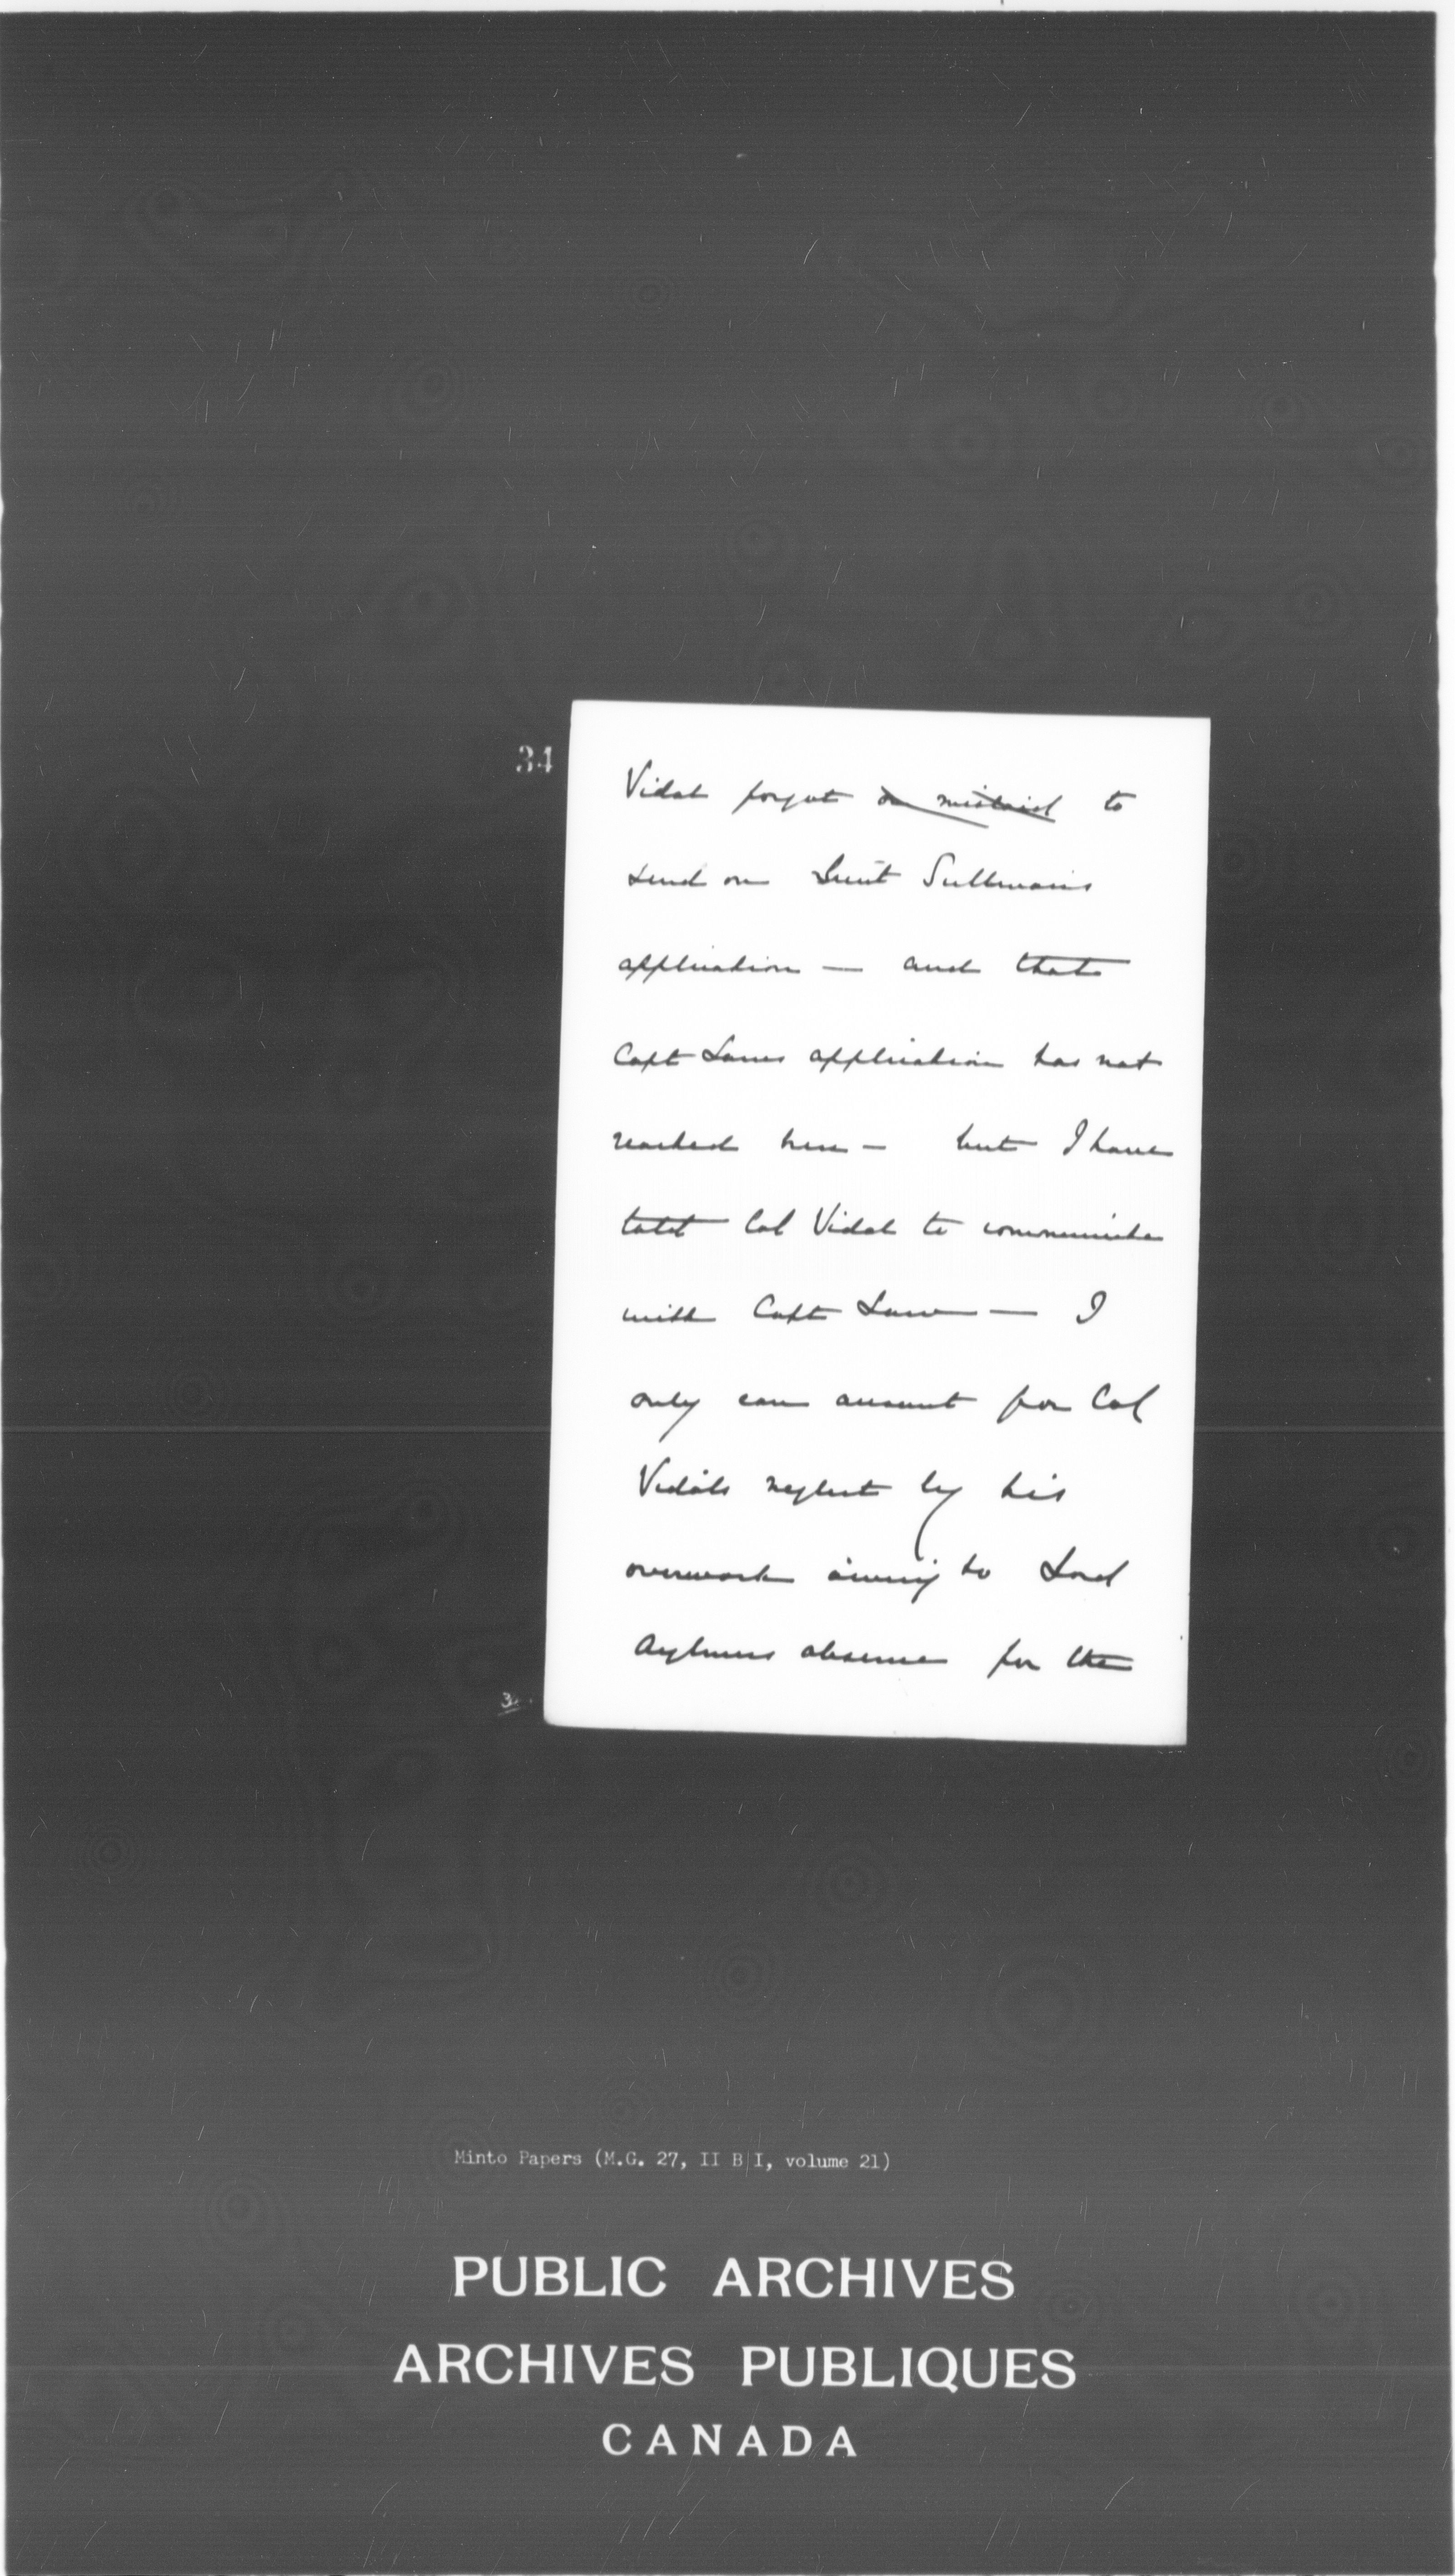 34
Vidal forgot or mislaid to
send on Lieut Sullivan's
application — and that
Capt Laws application has not
reached here — but I have
told Col Vidal to communicate
with Capt Law — I
only can account for Col
Vidals neglect by his
overwork owing to Lord
Aylmers absence for the
Minto Papers (M.G. 27, II B I, volume 21)
PUBLIC ARCHIVES
ARCHIVES PUBLIQUES
CANADA